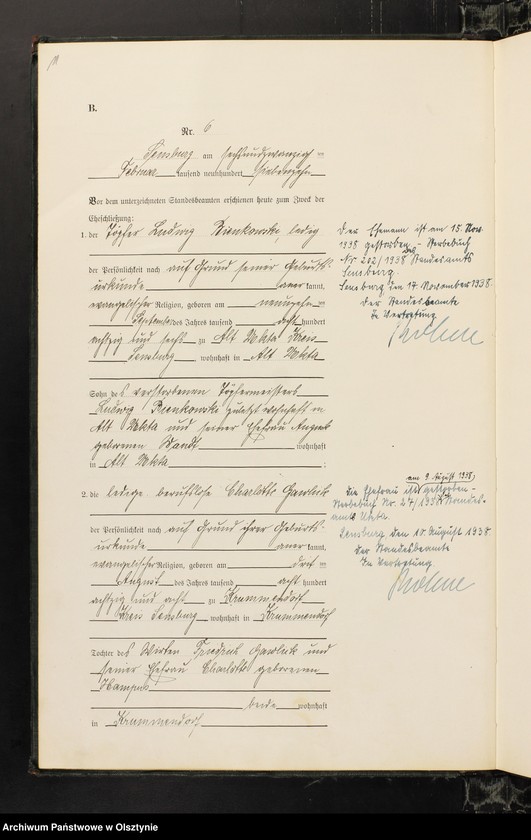 B.
Nr. 6
Sensburg am sechsundzwanzigsten
Februar tausend neunhundert siebenzehn
Vor dem unterzeichneten Standesbeamten erschienen heute zum Zweck der
Eheschließung:
1. der Töpfer Ludwig Bienkowski, ledig
der Persönlichkeit nach auf Grund seiner Geburts-
urkunde anerkannt,
evangelischer Religion, geboren am neunzehn-
September des Jahres tausend acht hundert
achtzig und sechs zu Alt Ukta Kreis
Sensburg, wohnhaft in Alt Ukta
Sohn des verstorbenen Töpfermeisters
Ludwig Bienkowski zuletzt wohnhaft in
Alt Ukta und seiner Ehefrau Auguste
geborenen wohnhaft
in Alt Ukta;
2. die ledige berufslose Charlotte Gawlick
der Persönlichkeit nach auf Grund ihrer Geburts-
urkunde anerkannt,
evangelischer Religion, geboren am drit-
August des Jahres tausend acht hundert
achtzig und acht zu Krummendorf
Kreis Sensburg, wohnhaft in Krummendorf
Tochter des Wirten Friedrich Gawlick und
seiner Ehefrau Charlotte geborenen
beide wohnhaft
in Krummendorf
Der Ehemann ist am 15. Nov.
1938 gestorben - Sterbebuch
Nr. 202/1938 des Standesamts
Sensburg.
Sensburg den 17. November 1938.
Der Standesbeamte
In Vertretung
am 9. August 1938
Die Ehefrau ist gestorben -
Sterbebuch Nr. 27/1938 Standes-
amt Ukta.
Sensburg, den 10. August 1938
Der Standesbeamte
In Vertretung
Archiwum Państwowe w Olsztynie